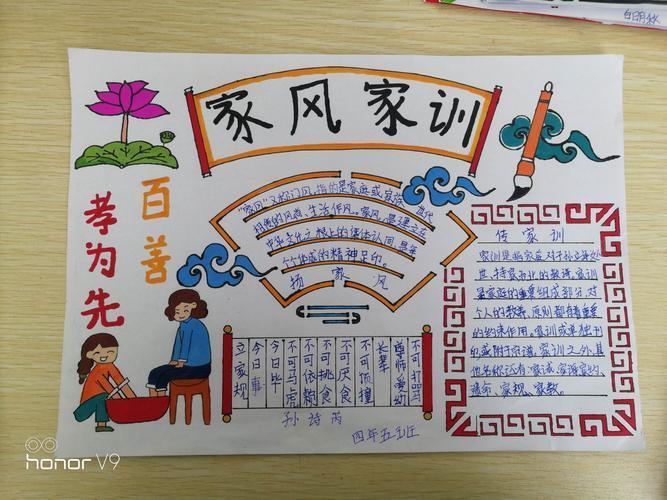 家风家训
百善
孝为先
"家风"又称门风,指的是家庭或家族世代
相传的风尚、生活作风。家风,是建立在
中华文化之根上的集体认同,是每
个个体成的精神足印。
扬家风
传家训
家训是指家庭对子孙立身处
世、持家治业的教诲。家训
是家庭的重要组成部分,对
个人的教养、原则都有着重要
的约束作用。家训或单独刊
印或附于宗谱。家训之外,其
他名称还有家诫、家诲、家约、
遗命、家规、家教。
不可打骂
尊师爱幼
长辈
不可顶撞
不可厌食
不可挑食
不可依赖
不可马虎
今日毕
今日事
立家规
四年五班
honor V9